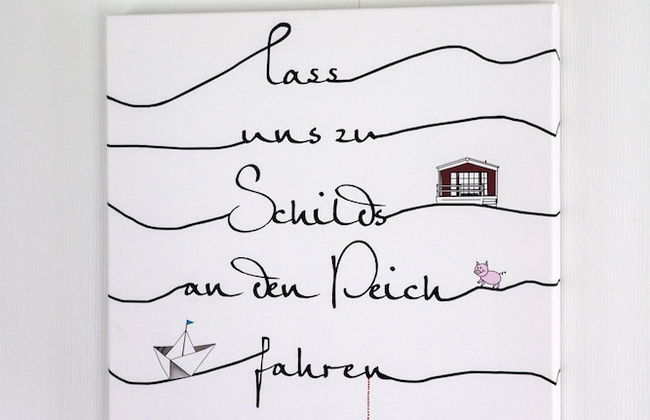 lass
uns zu
Schilds
an den Deich
fahren